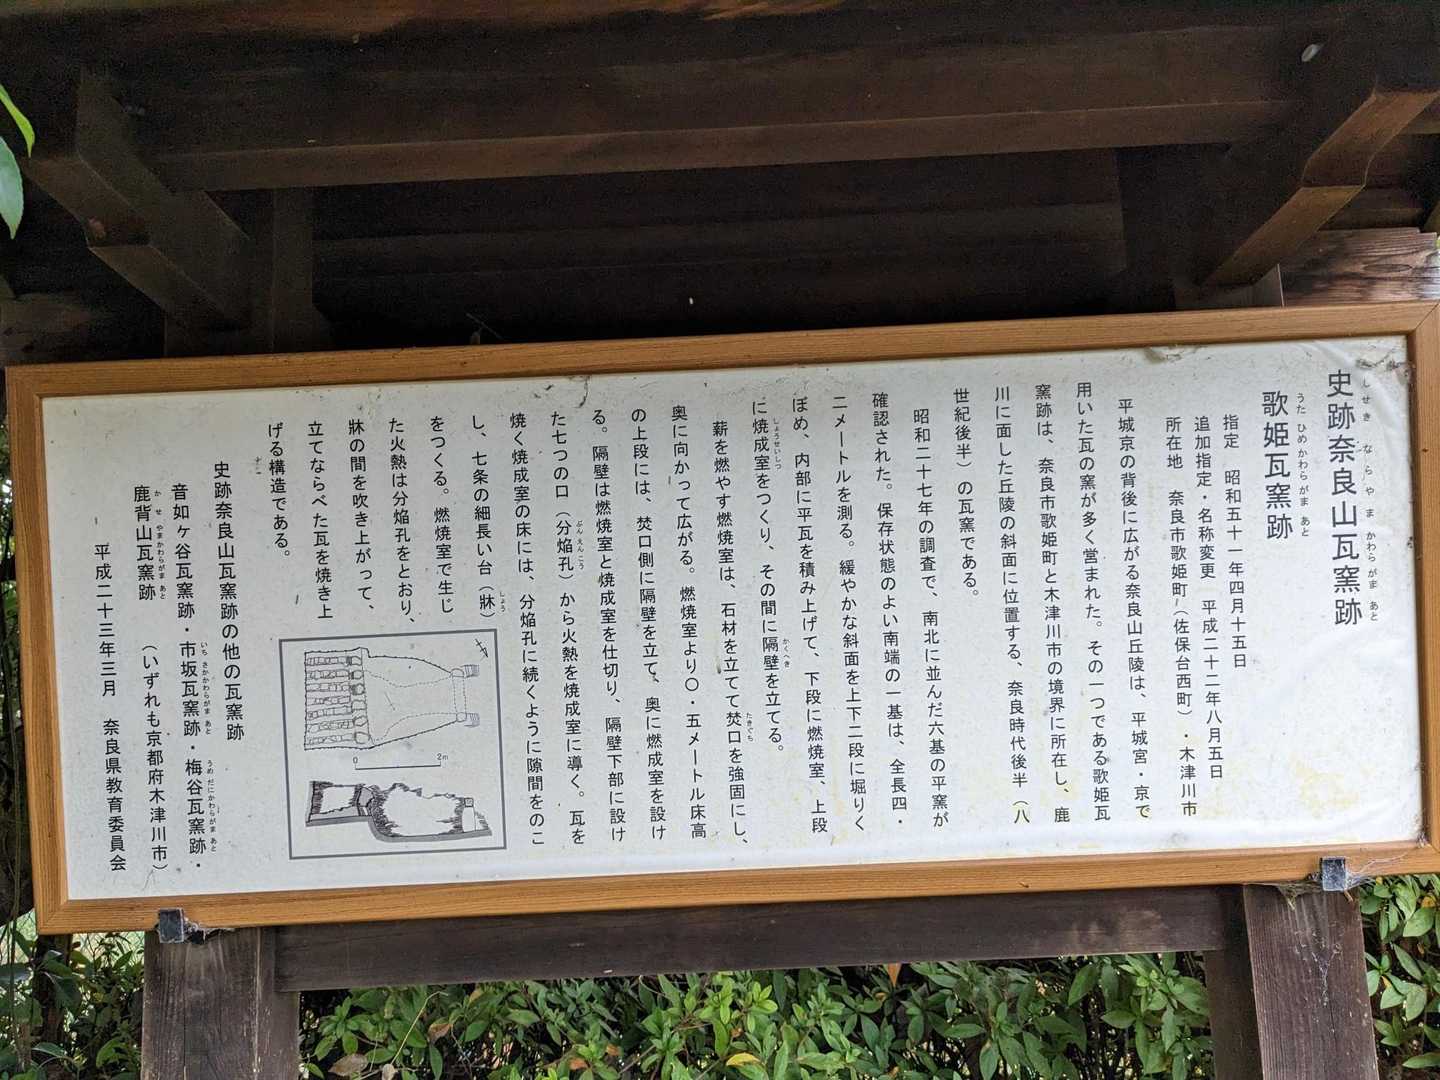 史跡奈良山瓦窯跡
しせき ならやま かわらがま あと
歌姫瓦窯跡
うたひめかわらがまあと
指定 昭和五十一年四月十五日
追加指定・名称変更 平成二十二年八月五日
所在地 奈良市歌姫町(佐保台西町)・木津川市
平城京の背後に広がる奈良山丘陵は、平城宮・京で
用いた瓦の窯が多く営まれた。その一つである歌姫瓦
窯跡は、奈良市歌姫町と木津川市の境界に所在し、鹿
川に面した丘陵の斜面に位置する、奈良時代後半(八
世紀後半)の瓦窯である。
昭和二十七年の調査で、南北に並んだ六基の平窯が
確認された。保存状態のよい南端の一基は、全長四・
二メートルを測る。緩やかな斜面を上下二段に堀りく
ぼめ、内部に平瓦を積み上げて、下段に燃焼室、上段
に焼成室をつくり、その間に隔壁を立てる。
しょうせいしつ
かくへき
薪を燃やす燃焼室は、石材を立てて焚口を強固にし、
たきぐち
奥に向かって広がる。燃焼室より〇・五メートル床高
の上段には、焚口側に隔壁を立て、奥に燃成室を設け
る。隔壁は燃焼室と焼成室を仕切り、隔壁下部に設け
た七つの口(分焔孔)から火熱を焼成室に導く。瓦を
ぶんえんこう
焼く焼成室の床には、分焔孔に続くように隙間をのこ
し、七条の細長い台(牀)
しょう
をつくる。燃焼室で生じ
た火熱は分焔孔をとおり、
牀の間を吹き上がって、
立てならべた瓦を焼き上
げる構造である。
0 2m
史跡奈良山瓦窯跡の他の瓦窯跡
音如ヶ谷瓦窯跡・市坂瓦窯跡・梅谷瓦窯跡・
いちさかかわらがまあと
うめだにかわらがまあと
鹿背山瓦窯跡 (いずれも京都府木津川市)
かせやまかわらがまあと
平成二十三年三月 奈良県教育委員会